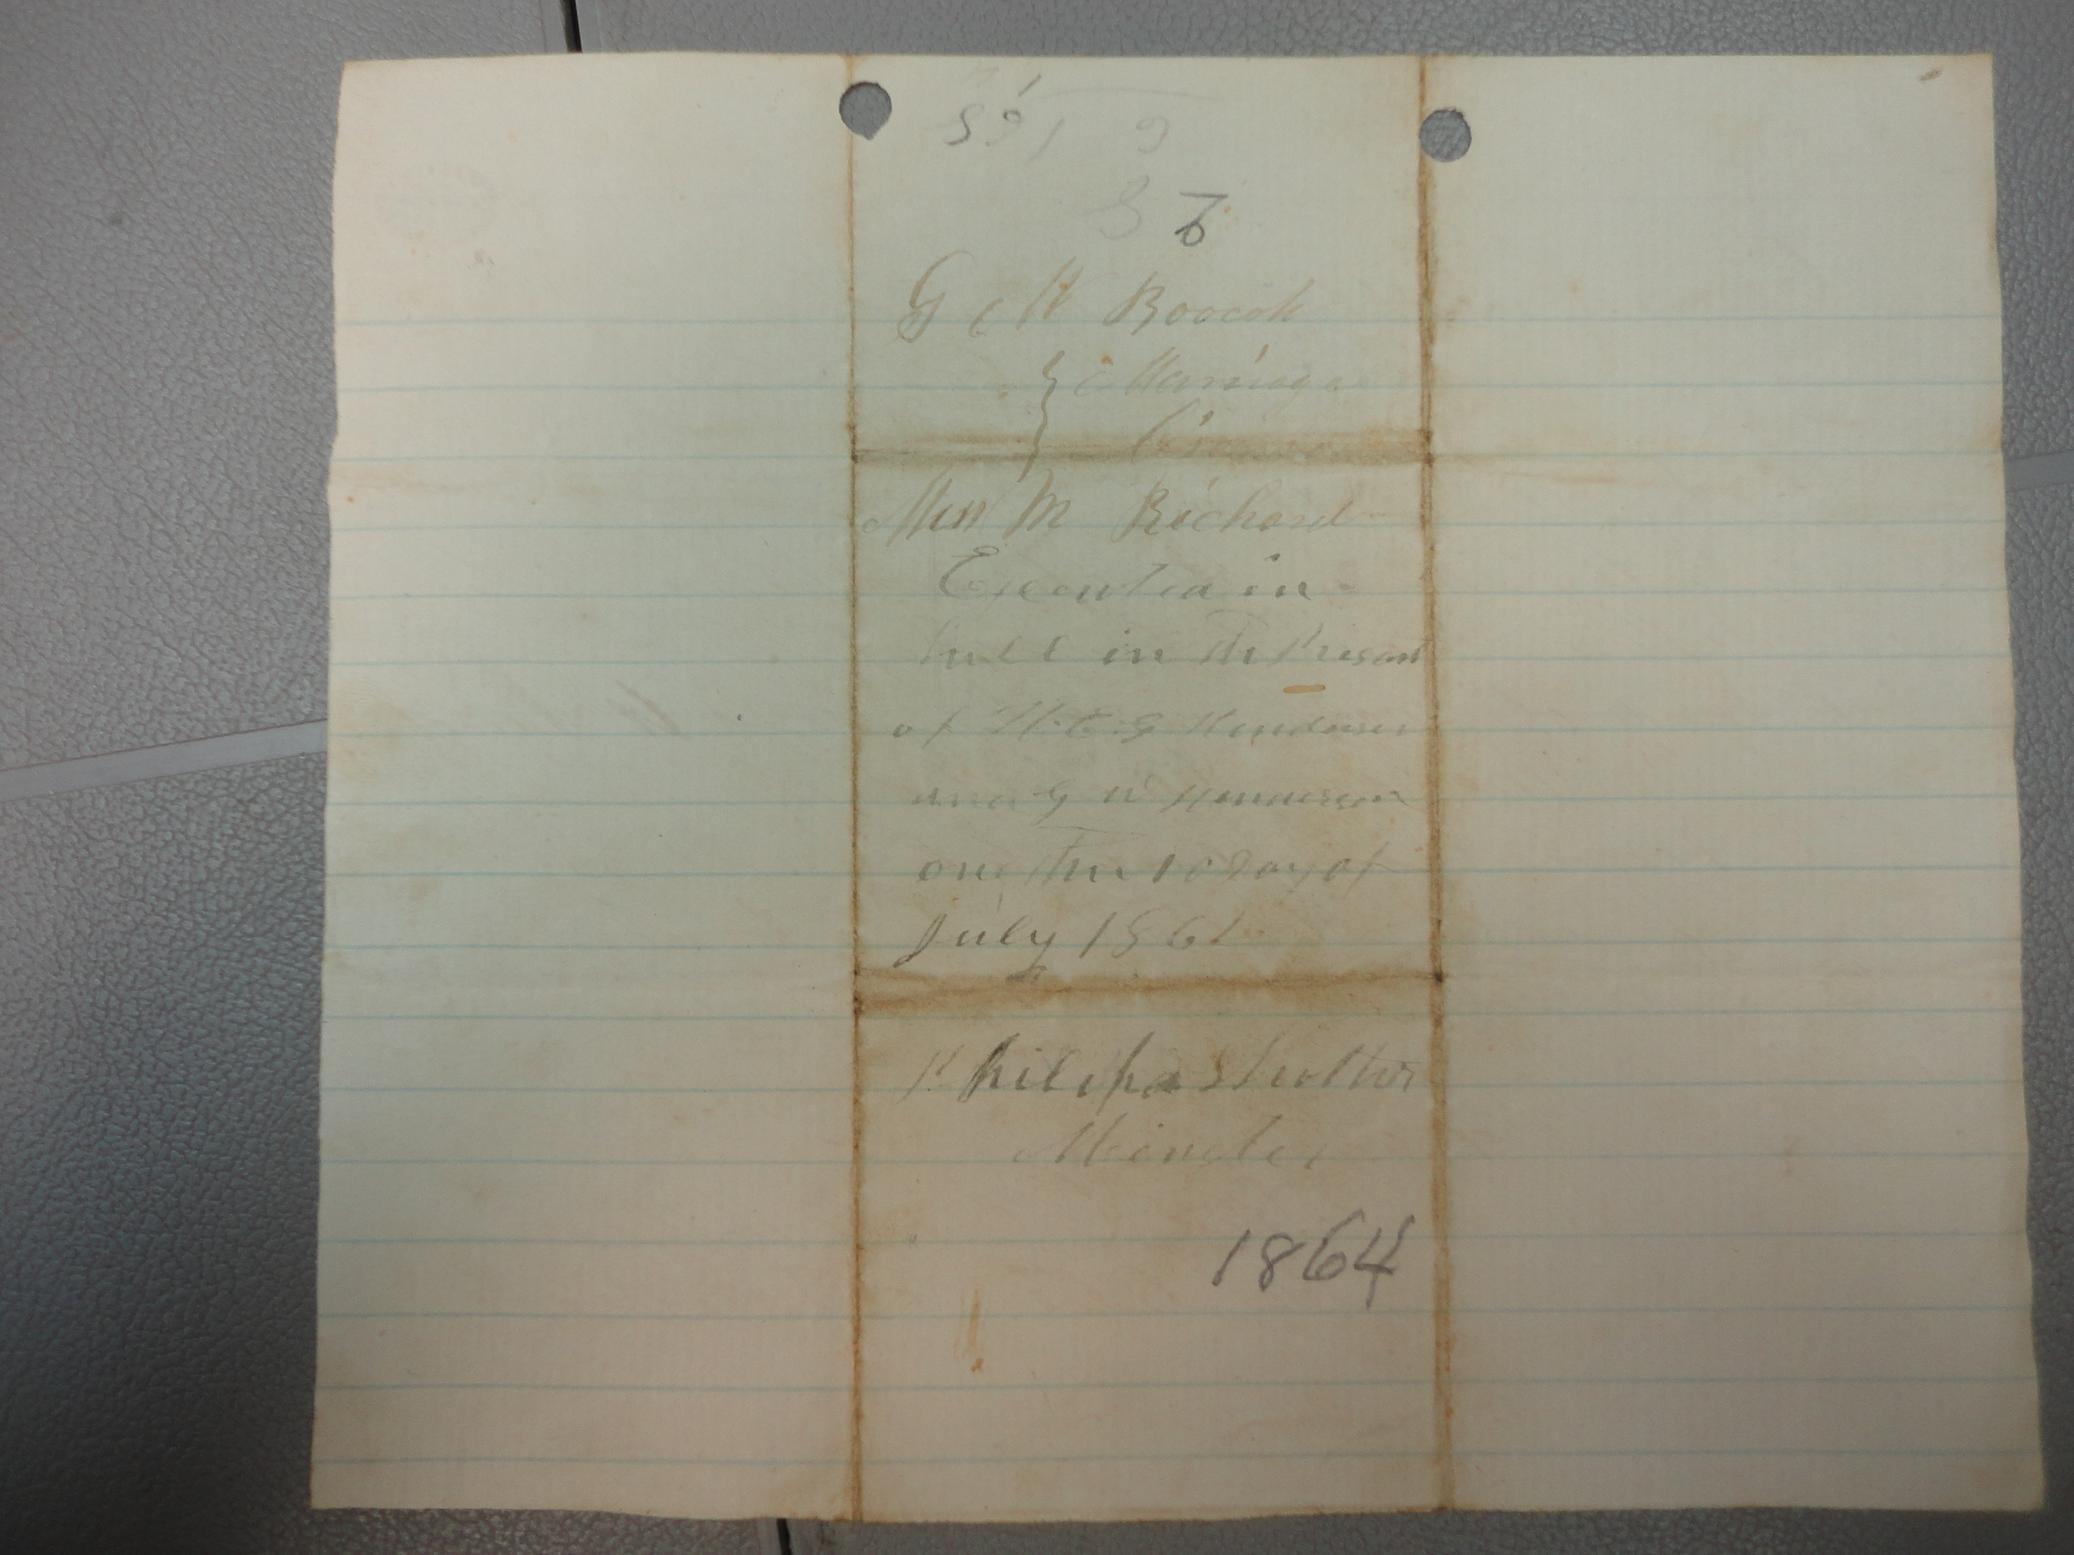 G C H Boocok
Marriage
Miss M Richard
Executed in
full in the Presant
of H. C. G Henderson
and G W Henderson
one the 10 Day of
July 1864
Philipa
Minster
1864